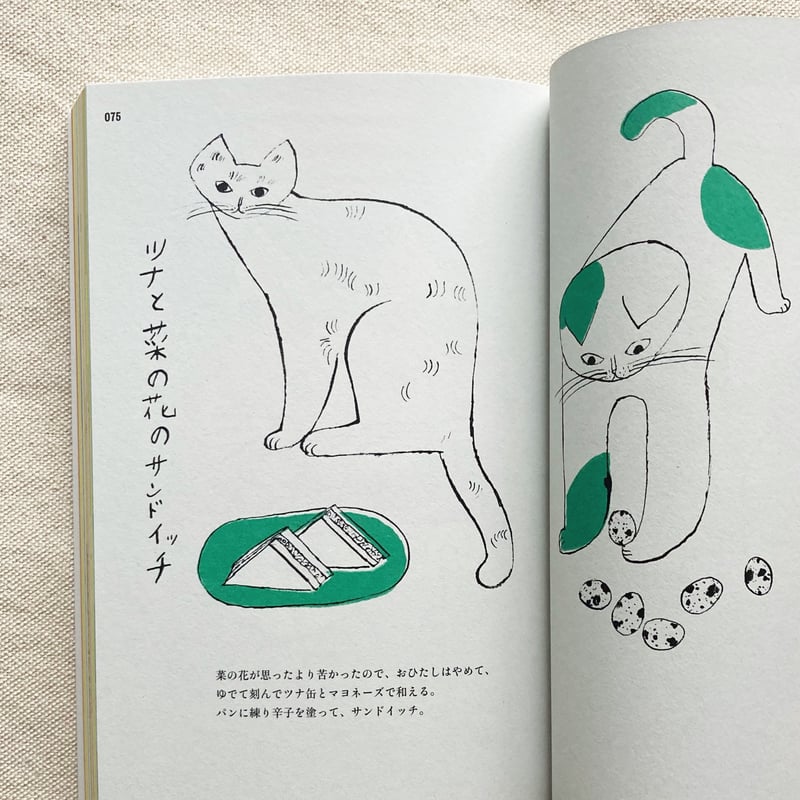 075
ツナと菜の花のサンドイッチ
菜の花が思ったより苦かったので、おひたしはやめて、
ゆでて刻んでツナ缶とマヨネーズで和える。
パンに練り辛子を塗って、サンドイッチ。